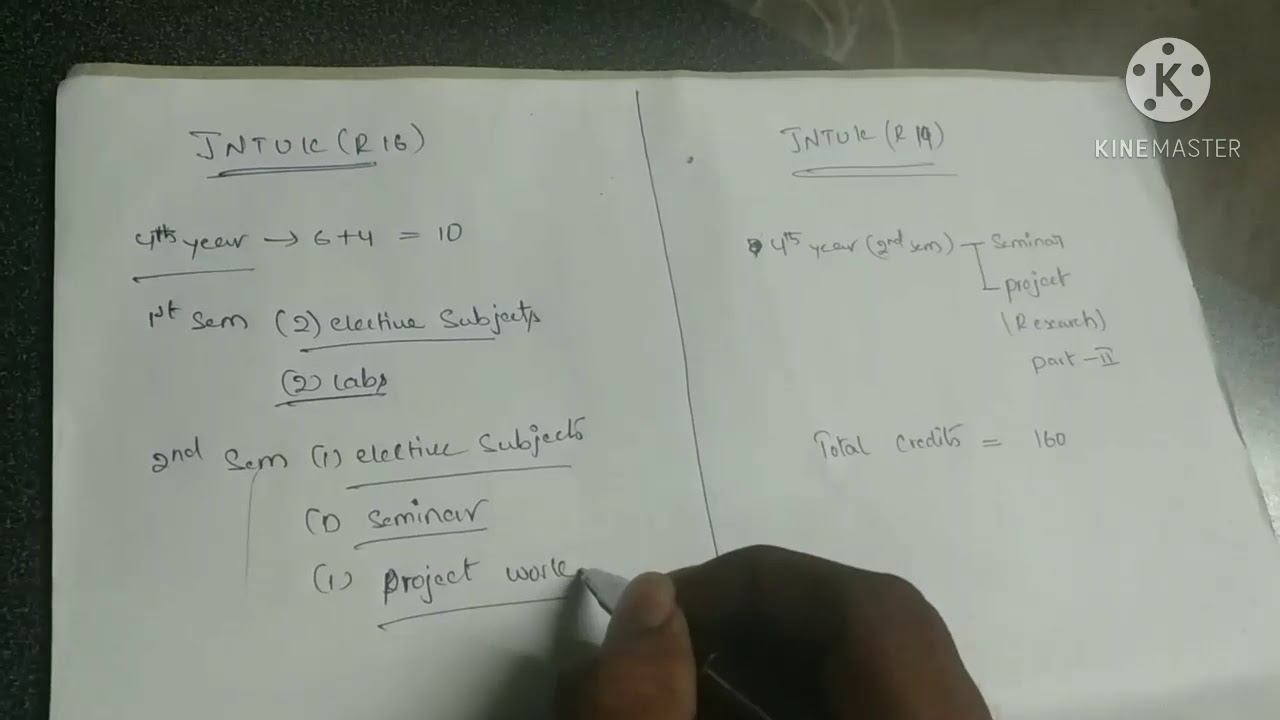 JNTUK (R16)
4th year → 6+4 = 10
1st Sem (2) elective Subjects
(2) Labs
2nd Sem (1) elective Subjects
(1) Seminar
(1) project work
JNTUK (R19)
4th year (2nd sem) Seminar
project
(Research)
part-II
Total Credits = 160
K
KINEMASTER